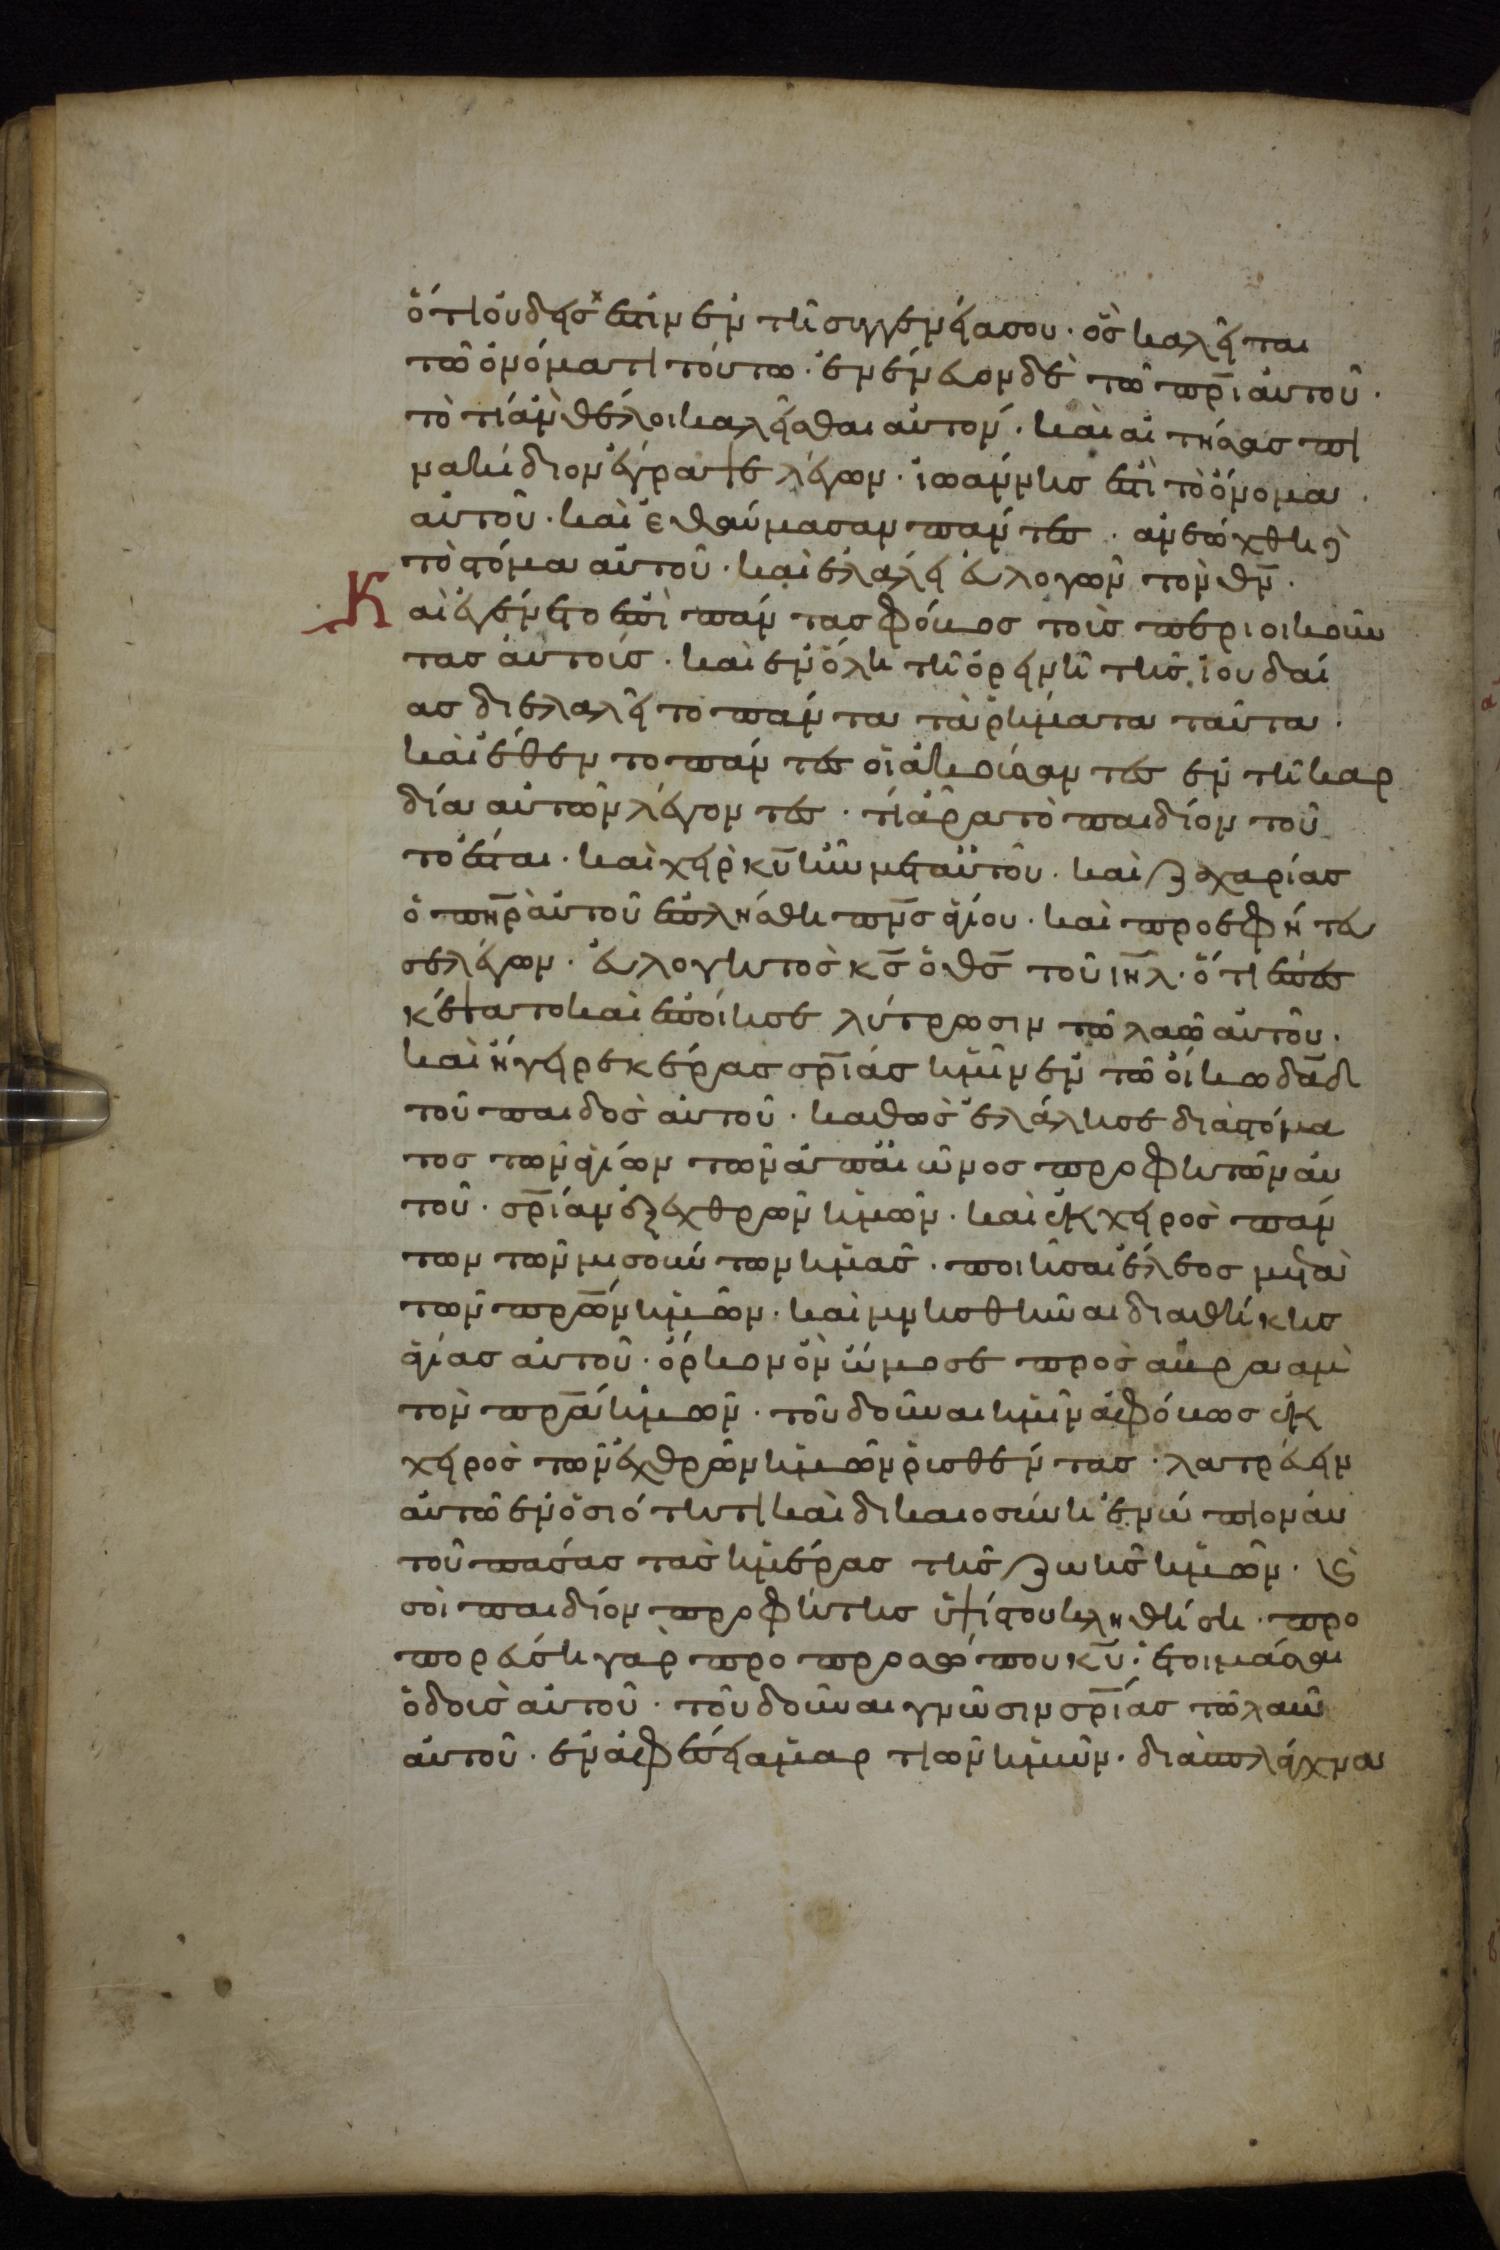 ὅτι οὐδείς ἐστιν ἐν τῆ συγγενείασου· ὃς καλεῖται
τῶ ὀνόματι τούτω· ἐνένευον δὲ τῶ πρ̅ι αὐτοῦ·
τὸ τί ἂν θέλοι καλεῖσθαι αὐτόν· καὶ αἰτήσας πι
νακίδιον ἔγραψε λέγων· ἰωάννης ἐστὶ τὸ ὄνομα
αὐτοῦ· καὶ ἐθαύμασαν πάντες· ἀνεώχθη δὲ
τὸ στόμα αὐτοῦ· καὶ ἐλάλει εὐλογῶν τὸν θν̅·
Καὶ ἐγένετο ἐπὶ πάντας φόβος τοὺς περιοικοῦν
τας αὐτούς· καὶ ἐν ὅλη τῆ ὀρεινῆ τῆς ἰουδαί
ας διελαλεῖτο πάντα τὰ ῥήματα ταῦτα·
καὶ ἔθεντο πάντες οἱ ἀκούσαντες ἐν τῆ καρ
δία αὐτῶν λέγοντες· τί ἄρα τὸ παιδίον τοῦ
το ἔσται· καὶ χεὶρ κυ̅ ἦν μετ αὐτοῦ· καὶ ζαχαρίας
ὁ πη̅ρ αὐτοῦ ἐπλήσθη πν̅ς ἁγίου· καὶ προεφήτευ
σε λέγων· εὐλογητὸς κς̅ ὁ θς̅ τοῦ ιη̅λ· ὅτι ἐπεσ
κέψατο καὶ ἐποίησε λύτρωσιν τῶ λαῶ αὐτοῦ·
καὶ ἤγειρε κέρας σρ̅ίας ἡμῖν ἐν τῶ οἴκω δα̅δ
τοῦ παιδὸς αὐτοῦ· καθὼς ἐλάλησε διὰ στόμα
τος τῶν ἁγίων τῶν ἀπαἰῶνος προφητῶν αὐ
τοῦ· σρ̅ίαν ἐξ ἐχθρῶν ἡμῶν· καὶ ἐκ χειρὸς πάν
των τῶν μισούντων ἡμᾶς· ποιῆσαι ἔλεος μετὰ
τῶν πρω̅ν ἡμῶν· καὶ μνησθῆναι διαθήκης
ἁγίας αὐτοῦ· ὅρκον ὃν ὤμοσε πρὸς ἀβραὰμ
τὸν πρ̅α ἡμῶν· τοῦ δοῦναι ἡμῖν ἀφόβως ἐκ
χειρὸς τῶν ἐχθρῶν ἡμῶν ῥυσθέντας· λατρεύειν
αὐτῶ ἐν ὁσιότητι καὶ δικαιοσύνη ἐνώπιον αὐ
τοῦ πάσας τὰς ἡμέρας τῆς ζωῆς ἡμῶν· καὶ
σὺ παιδίον προφήτης ὑψίστου κληθήση· προ
πορεύση γὰρ προ προσώπου κυ̅· ἑτοιμάσαι
ὁδοὺς αὐτοῦ· τοῦ δοῦναι γνῶσιν σρ̅ίας τῶ λαῶ
αὐτοῦ· ἐν ἀφέσει ἁμαρτιῶν ἡμῶν· διὰ σπλάχνα